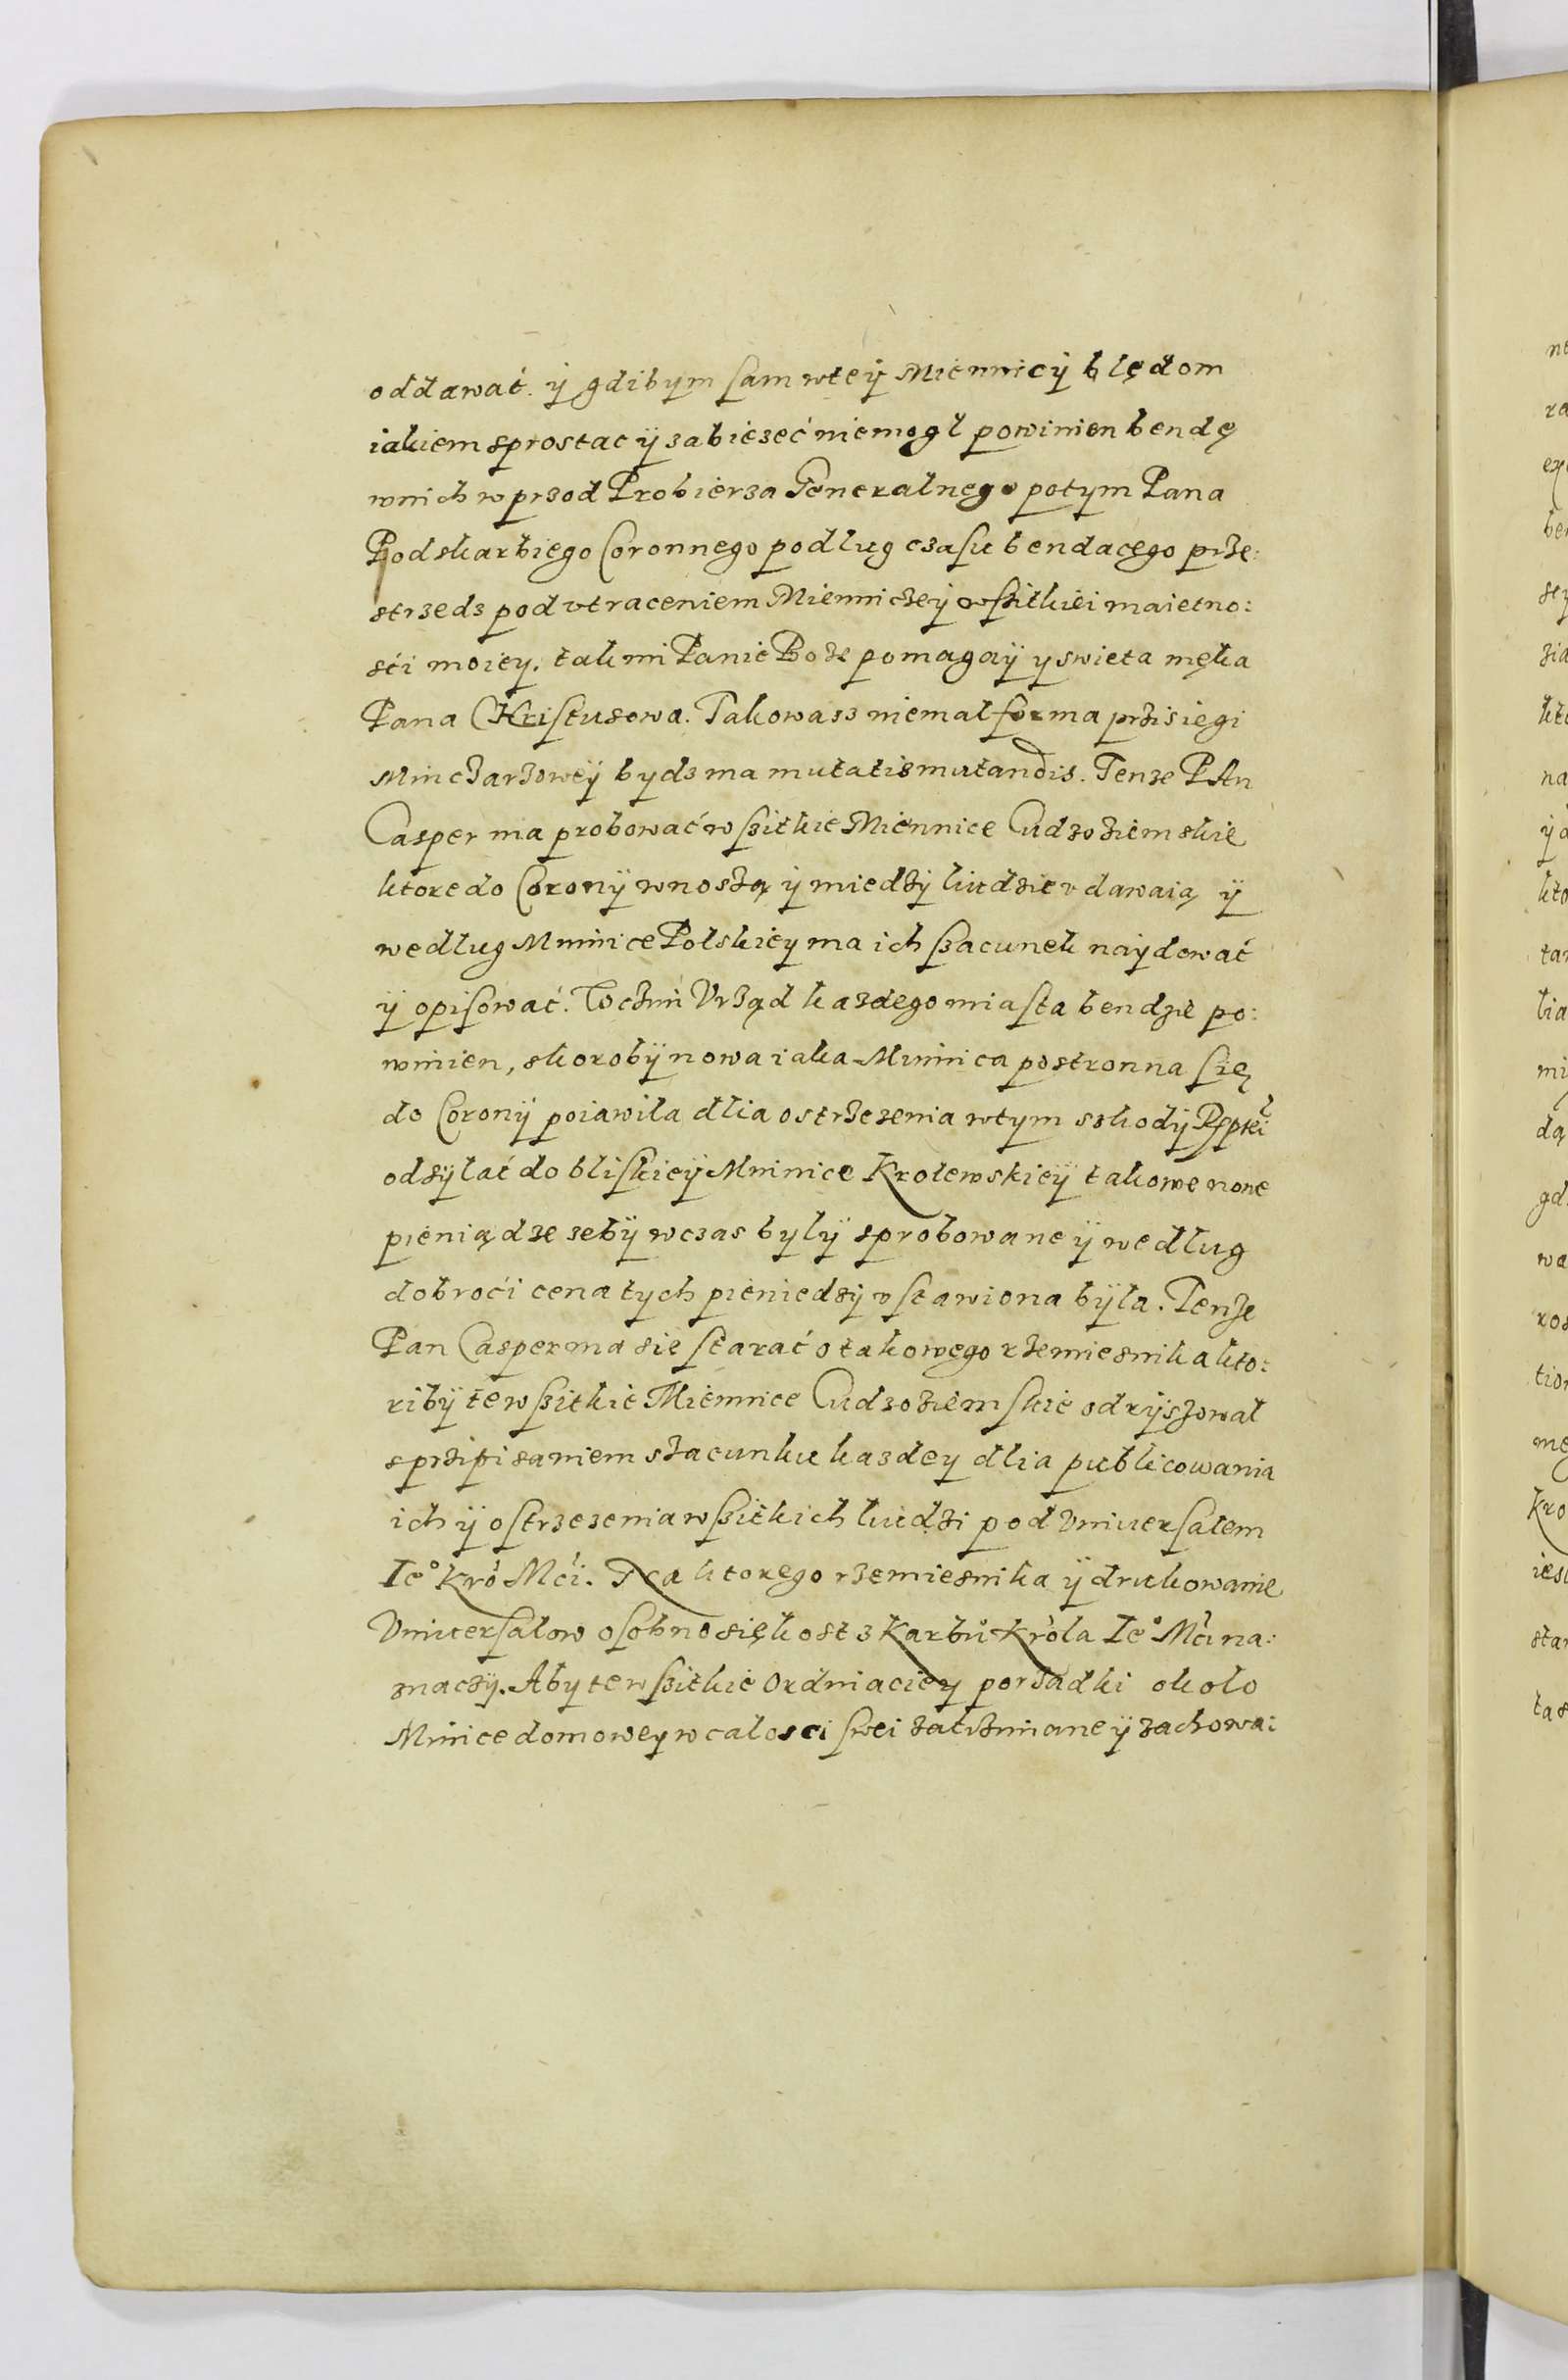 oddawać. ÿ gdibym sam wteÿ Miennicÿ blędom
iakiem sprostac ÿ zabiezeć niemogl powinien bendę
wnich wprzod Probierza Generalnego potym Pana
Podskarbiego Coronnego podlug czasu bendacego prze:
strzedz pod vtraceniem Mienniczeÿ wszitkiei maietno:
sći moiey. tak mi Panie Boze pomagaÿ y swieta męka
Pana Christusowa. Takowasz niemal forma przisiegi
Minczarzoweÿ bydz ma mutatis mutandis. Tenze PAn
Casper ma probować wszitkie Miennice Cudzoziemskie
ktore do Coronÿ wnoszą ÿ miedzÿ liudzie vdawaią ÿ
wedlug Mninice Polskiey ma ich szacunek naÿdować
ÿ opisować. Toczim Vrząd kazdego miasta bendzie po:
winien, skorobÿ nowa iaka Mninica postronna się
do Coronÿ poiawila dlia ostrzezenia wtym szkodÿ Rsptei
odsÿlać do bliskieÿ Mninice Krolewskieÿ takowe nowe
pieniądze zebÿ wczas bylÿ sprobowane ÿ wedlug
dobroći cena tych pieniedzÿ vstawiona bÿla. Tenze
Pan Casper ma sie starać o takowego rzemiesnika kto:
ribÿ te wszitkie Miennice Cudzoziemskie odrÿszowal
sprzipisaniem szacunku kazdey dlia publicowania
ich ÿ ostrzezenia wszitkich liudzi pod Vniuersalem
Ie° Kro Mći. Na ktorego rzemiesnika ÿ drukowanie
Vniuersalow osobno się kost z Karbu Krola Ie° Mći na:
znaczÿ. Aby te wszitkie Ordniaciey porzadki okolo
Mninice domowey w calosci swei zatrzimane ÿ zachowa: